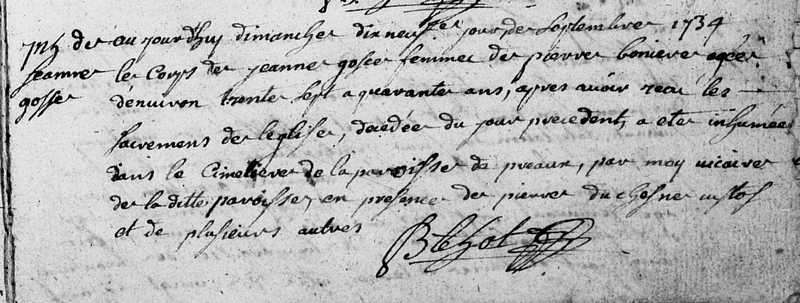 Inh de
jeanne
gosse
aujourd'huy dimanche dixneuf.e jour de septembre 1734
le Corps de jeanne gosce femme de pierre boniere agée
d'environ trente sept a quarante ans, apres avoir recu les
sacremens de leglise, decedée du jour precedent, a ete inhumée
dans le Cimetiere de la paroisse de preaux, par moy vicaire
de la ditte paroisse, en presence de pierre duchesne custos
et de plusieurs autres